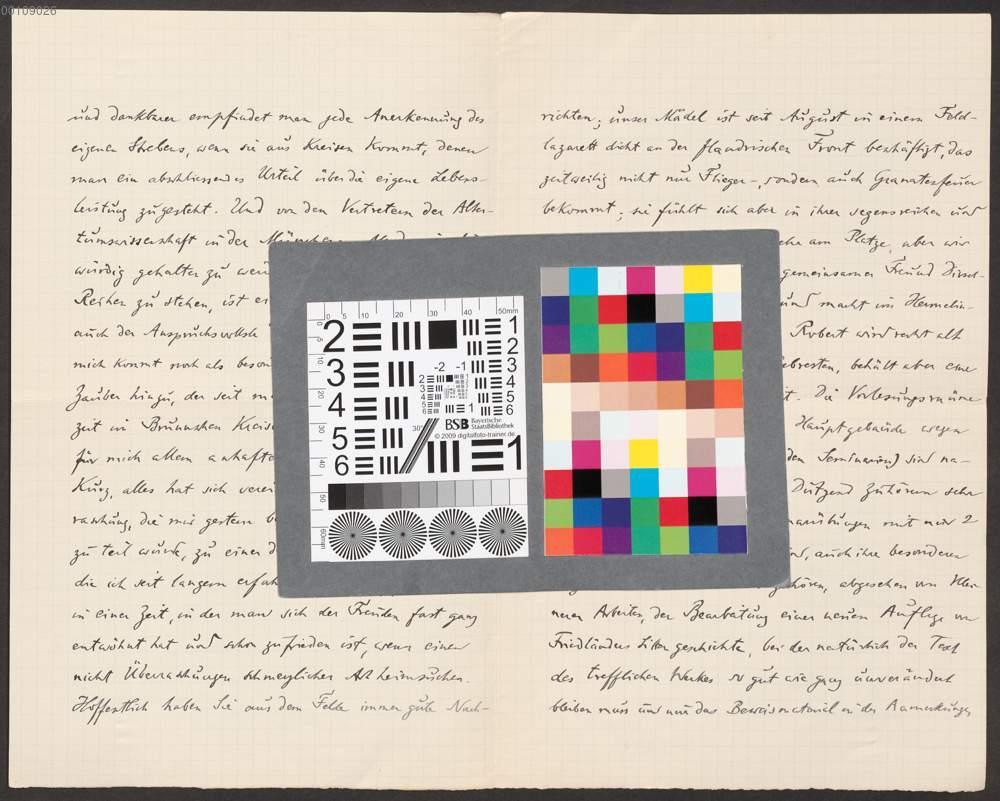 00109026
und dankbarer empfindet man jede Anerkennung des
eigenen Strebens, wenn sie aus Kreisen kommt, denen
man ein abschliessendes Urteil über die eigene Lebens-
leistung zugesteht. Und von den Vertretern der Alter-
tumswissenschaft in der
würdig gehalten zu
Reihen zu stehen, ist
auch der Anspruchsvollste
mich kommt noch als
Zauber hinzu, der seit
zeit in Brunnschen
für mich allem anhafte
Kurz, alles hat sich
raschung, die mir gestern
zu teil wurde, zu einer
die ich seit langem
in einer Zeit, in der man sich der Freuden fast ganz
entwöhnt hat und schon zufrieden ist, wenn einen
nicht Überraschungen schmerzlicher Art heimsuchen.
Hoffentlich haben Sie aus dem Felde immer gute Nach-
richten; unser Mädel ist seit August in einem Feld-
lazarett dicht an der flandrischen Front beschäftigt, das
zeitweilig nicht nur Flieger-, sondern auch Granatenfeuer
bekommt; sie fühlt sich aber in ihrer segensreichen und
am Platze, aber wir
gemeinsamer Freund
und macht im
Robert wird recht alt
behält aber eine
Die Vorlesungsräume
Hauptgebäude wegen
den Seminarien) sind
Dutzend Zuhörern sehr
mit nur 2
auch ihre besonderen
abgesehen von klei-
neren Arbeiten, der Bearbeitung einer neuen Auflage von
Friedländers Sittengeschichte, bei der natürlich der Text
des trefflichen Werkes so gut wie ganz unverändert
bleiben muss und nur das Beweismaterial in den Anmerkungen
0 5 10 20 30 40 50mm
0 5 10 20 30 40 50 60mm
2 3 4 5 6
1 2 3 4 5 6
-2 -1
1
30°
BSB Bayerische
StaatsBibliothek
© 2009 digitalfoto-trainer.de
1